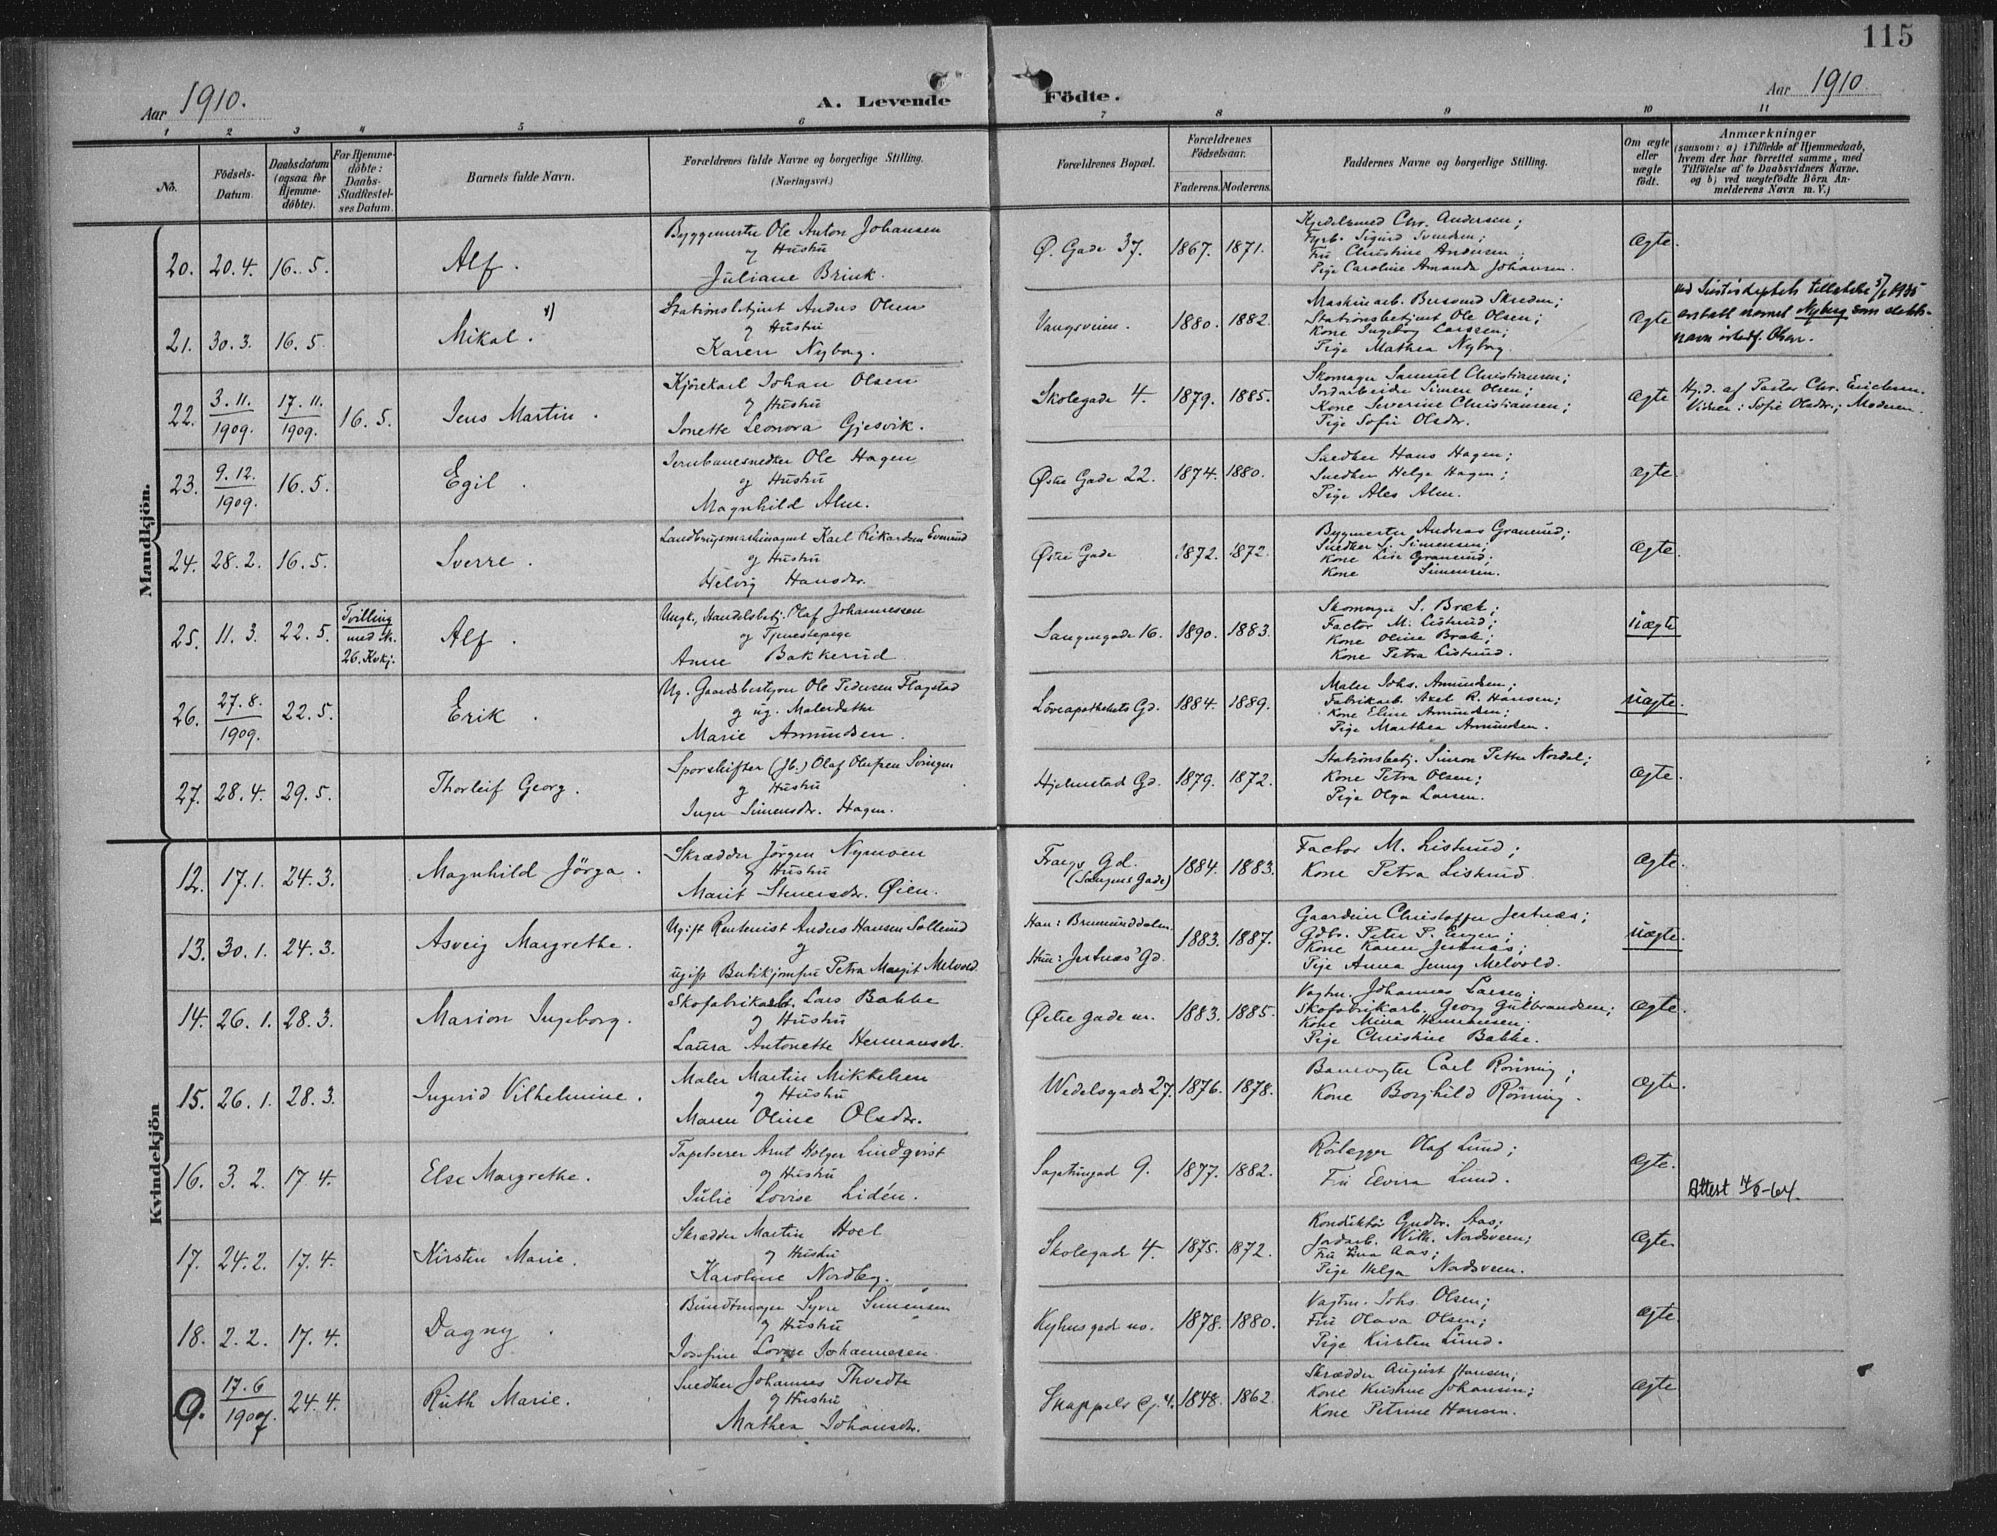 115
Aar 1910.
A. Levende Födte.
Aar 1910
1 2 3 4 5 6 7 8 9 10 11
No.
Födsels-Datum.
Daabsdatum (ogsaa for Hjemme-döbte).
For Hjemme-döbte: Daabs-Stadfæstel-ses Datum.
Barnets fulde Navn.
Forældrenes fulde Navne og borgerlige Stilling.
(Næringsvei.)
Forældrenes Bopæl.
Forældrenes Födselsaar.
Faderens. Moderens.
Faddernes Navne og borgerlige Stilling.
Om ægte eller uægte födt.
Anmærkninger
(saasom: a) i Tilfælde af Hjemmedaab,
hvem der har forrettet samme, med
Tilföielse af to Daabsvidners Navne.
og b) ved uægtefödte Börn An-
melderens Navn m. V.)
Mandkjön.
20. 20.4. 16.5. Alf.
Byggemester Ole Anton Johansen
og Hustru
Juliane Brink.
Ö. Gade 37. 1867. 1871.
Kjedelsmed Chr. Andersen;
Fyrb. Sigurd Svendsen;
Fru Christine Andersen;
Pige Caroline Amanda Johansen.
Ægte.
21. 30.3. 16.5. Mikal. 1)
Stationsbetjent Anders Olsen
og Hustru
Karen Nyborg.
Vangsveien. 1880. 1882.
Stationsbetjent Ole Olsen;
Kone Ingeborg Larssen;
Pige Mathea Nyborg.
Ægte
navn istedf. Olsen.
22. 3.11./1909. 17.11./1909. 16.5. Jens Martin.
Kjörekarl Johan Olsen
og Hustru
Jonette Leonora Gjesvik.
Skolegade 4. 1879. 1885.
Skomager Samuel Christiansen;
Jordarbeider Simen Olsen;
Kone Severine Christiansen;
Pige Sofie Olsdtr.
Ægte
Hj.d. af Pastor Chr. Erichsen.
Vidner: Sofie Olsdtr.; Moderen.
23. 9.12./1909. 16.5. Egil.
Jernbanesnedker Ole Hagen
og Hustru
Magnhild Alm.
Östre Gade 22. 1874. 1880.
Snedker Hans Hagen;
Snedker Helge Hagen;
Pige Ales Alm.
Ægte.
24. 28.2. 16.5. Sverre.
Landbrugsmaskinagent Karl Rikardsen Evenrud
og Hustru
Helvig Hansdtr.
Östre Gade 1872. 1872.
Bygmester Andreas Granerud;
Snedker S. Simensen;
Kone Lise Granerud;
Kone Simensen.
Ægte.
25. 11.3. 22.5. Tvilling med No. 26. Kvkj. Alf.
Ungk., Handelsbetj. Olaf Johannessen
og Tjenestepige
Anne Bakkerud
Sangengade 16. 1890. 1883.
Skomager S. Bræk;
Factor M. Listerud;
Kone Oline Bræk;
Kone Petra Listerud.
uægte
26. 27.8./1909. 22.5. Erik.
Ug. Gaardsbestyrer Ole Pedersen Flagstad
og ug. Malerdatter
Marie Amundsen.
Löveapothekets Gd. 1884. 1889.
Maler Johs. Amundsen;
Fabrikarb. Axel R. Hansen;
Kone Eline Amundsen;
Pige Marthea Amundsen.
uægte.
27. 28.4. 29.5. Thorleif Georg.
Sporskifter (Jb.) Olaf Olufsen
og Hustru
Inger Simensdtr. Hagen.
Hjelmstad Gd. 1879. 1872.
Stationsbetj. Simon Petter Nordal;
Kone Petra Olsen;
Pige Olga Larsen.
Ægte.
Kvindekjön
12. 17.1. 24.3. Magnhild Jörga.
Skrædder Jörgen Nymoen
og Hustru
Marit Stenersdtr. Öien.
Frangs Gd.
(Sangens Gade) 1884. 1883.
Factor M. Listerud;
Kone Petra Listerud.
Ægte.
13. 30.1. 24.3. Asveig Margrethe.
Ugift Rentenist Anders Hansen Sollerud
og
ugift Butikjomfru Petra Margit Melvold.
Han: Brumunddalen.
Hun: Jestnæs' Gd. 1883. 1887.
Gaardeier Christoffer Jestnæs;
Gdbr. Peter P. Enger;
Kone Karen Jestnæs;
Pige Anna Jenny Melvold.
uægte.
14. 26.1. 28.3. Marion Ingeborg.
Skofabrikarb. Lars Bakke
og Hustru
Laura Antonette Hermansdtr.
Östre gade nr. 1883. 1885.
Vagtm. Johannes Larsen;
Skofabrikarb. Georg Gulbrandsen;
Kone Mina Henriksen;
Pige Christine Bakke.
Ægte.
15. 26.1. 28.3. Ingrid Vilhelmine.
Maler Martin Mikkelsen
og Hustru
Maren Oline Olsdtr.
Wedelsgade 27. 1876. 1878.
Banevogter Carl Rönning;
Kone Borghild Rönning.
Ægte.
16. 3.2. 17.4. Else Margrethe.
Tapetserer Arnt Holger Lindqvist
og Hustru
Julie Lovise Lidén.
9. 1877. 1882.
Rörlægger Olaf Lund;
Fru Elvira Lund.
Ægte.
Attest 14/8-64.
17. 24.2. 17.4. Kirsten Marie.
Skrædder Martin Hoel
og Hustru
Karoline Nordby.
Skolegade 4. 1875. 1872.
Konduktör Gudbr. Aas;
Jordarb. Wilh. Nordsveen;
Fru Lina Aas;
Pige Helga Nordsveen.
Ægte.
18. 2.2. 17.4. Dagny.
Bundtmager Syver Simensen
og Hustru
Josefine Lovise Johannesen.
Kyhusgad no. 1878. 1880.
Vagtm. Johs. Olsen;
Fru Olava Olsen;
Pige Kirsten Lund.
Ægte.
9. 17.6/1909. 24.4. Ruth Marie.
Snedker Johannes Thvedte
og Hustru
Mathea Johansdtr.
Skappels G. 4. 1848. 1862.
Skrædder August Hansen;
Kone Kristine Johansen;
Kone Petrine Hansen.
Ægte